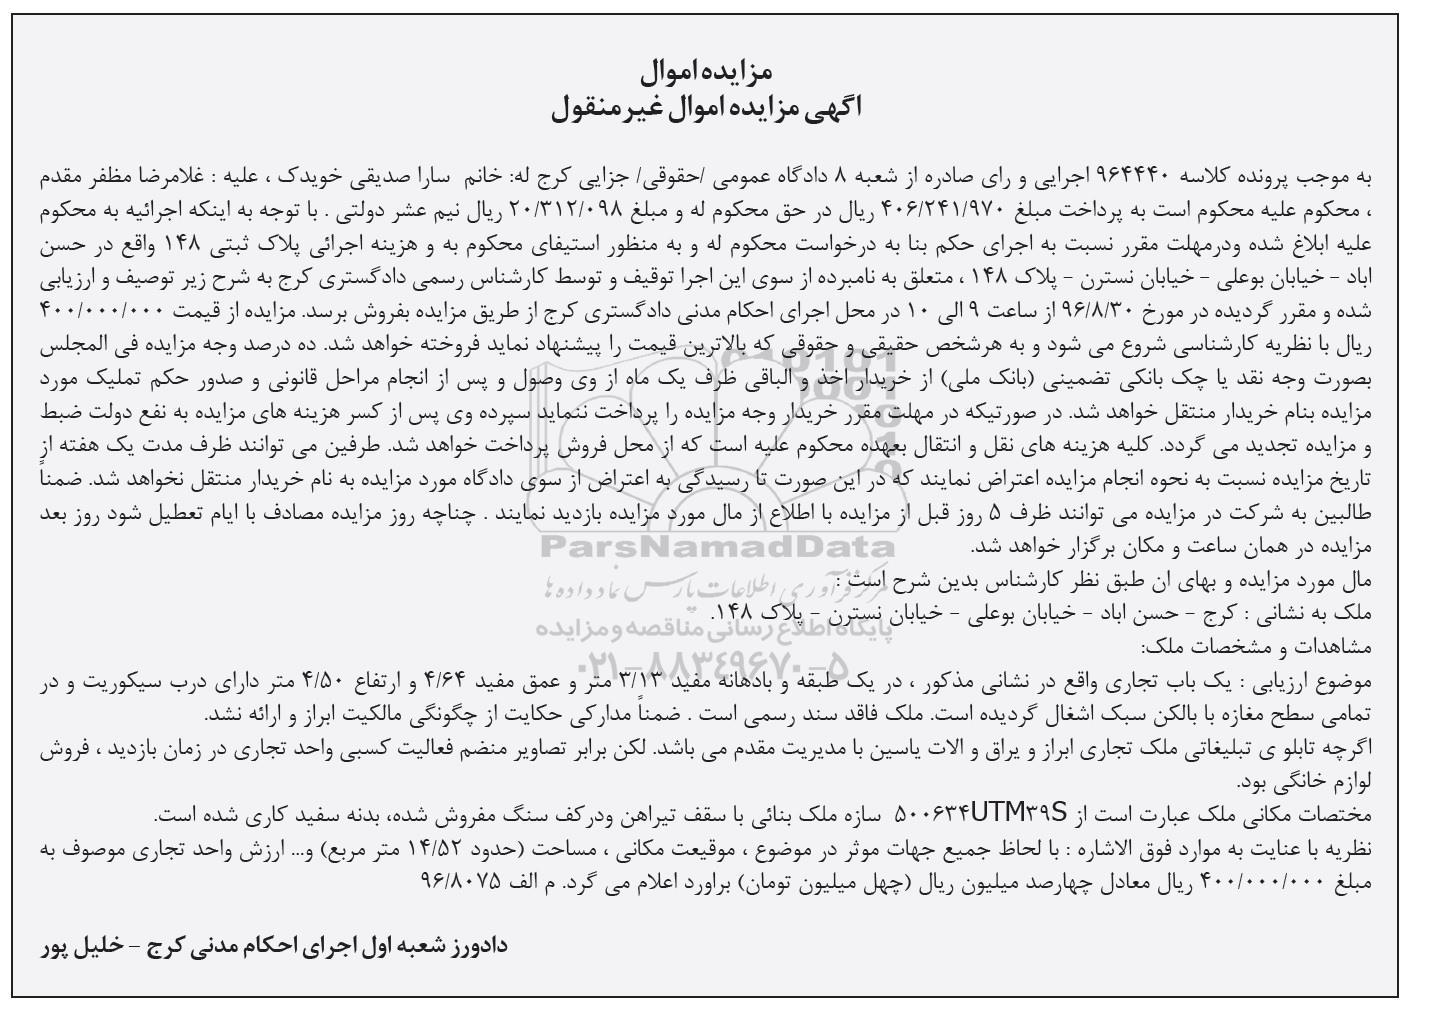 مزایده اموال
اگهی مزایده اموال غیرمنقول
به موجب پرونده کلاسه ۹۶۴۴۴۰ اجرایی و رای صادره از شعبه ۸ دادگاه عمومی /حقوقی/ جزایی کرج له: خانم سارا صدیقی خویدک ، علیه : غلامرضا مظفر مقدم
، محکوم علیه محکوم است به پرداخت مبلغ ۴۰۶/۲۴۱/۹۷۰ ریال در حق محکوم له و مبلغ ۲۰/۳۱۲/۰۹۸ ریال نیم عشر دولتی . با توجه به اینکه اجرائیه به محکوم
علیه ابلاغ شده ودرمهلت مقرر نسبت به اجرای حکم بنا به درخواست محکوم له و به منظور استیفای محکوم به و هزینه اجرائی پلاک ثبتی ۱۴۸ واقع در حسن
اباد - خیابان بوعلی - خیابان نسترن - پلاک ۱۴۸ ، متعلق به نامبرده از سوی این اجرا توقیف و توسط کارشناس رسمی دادگستری کرج به شرح زیر توصیف و ارزیابی
شده و مقرر گردیده در مورخ ۹۶/۸/۳۰ از ساعت ۹ الی ۱۰ در محل اجرای احکام مدنی دادگستری کرج از طریق مزایده بفروش برسد. مزایده از قیمت ۴۰۰/۰۰۰/۰۰۰
ریال با نظریه کارشناسی شروع می شود و به هرشخص حقیقی و حقوقی که بالاترین قیمت را پیشنهاد نماید فروخته خواهد شد. ده درصد وجه مزایده فی المجلس
بصورت وجه نقد یا چک بانکی تضمینی (بانک ملی) از خریدار اخذ و الباقی ظرف یک ماه از وی وصول و پس از انجام مراحل قانونی و صدور حکم تملیک مورد
مزایده بنام خریدار منتقل خواهد شد. در صورتیکه در مهلت مقرر خریدار وجه مزایده را پرداخت ننماید سپرده وی پس از کسر هزینه های مزایده به نفع دولت ضبط
و مزایده تجدید می گردد. کلیه هزینه های نقل و انتقال بعهده محکوم علیه است که از محل فروش پرداخت خواهد شد. طرفین می توانند ظرف مدت یک هفته از
تاریخ مزایده نسبت به نحوه انجام مزایده اعتراض نمایند که در این صورت تا رسیدگی به اعتراض از سوی دادگاه مورد مزایده به نام خریدار منتقل نخواهد شد. ضمناً
طالبین به شرکت در مزایده می توانند ظرف ۵ روز قبل از مزایده با اطلاع از مال مورد مزایده بازدید نمایند . چناچه روز مزایده مصادف با ایام تعطیل شود روز بعد
مزایده در همان ساعت و مکان برگزار خواهد شد.
مال مورد مزایده و بهای ان طبق نظر کارشناس بدین شرح است :
ملک به نشانی : کرج - حسن اباد - خیابان بوعلی - خیابان نسترن - پلاک ۱۴۸.
مشاهدات و مشخصات ملک:
موضوع ارزیابی : یک باب تجاری واقع در نشانی مذکور ، در یک طبقه و بادهانه مفید ۳/۱۳ متر و عمق مفید ۴/۶۴ و ارتفاع ۴/۵۰ متر دارای درب سیکوریت و در
تمامی سطح مغازه با بالکن سبک اشغال گردیده است. ملک فاقد سند رسمی است . ضمناً مدارکی حکایت از چگونگی مالکیت ابراز و ارائه نشد.
اگرچه تابلو ی تبلیغاتی ملک تجاری ابراز و یراق و الات یاسین با مدیریت مقدم می باشد. لکن برابر تصاویر منضم فعالیت کسبی واحد تجاری در زمان بازدید ، فروش
لوازم خانگی بود.
مختصات مکانی ملک عبارت است از ۵۰۰۶۳۴UTM۳۹S سازه ملک بنائی با سقف تیراهن ودرکف سنگ مفروش شده، بدنه سفید کاری شده است.
نظریه با عنایت به موارد فوق الاشاره : با لحاظ جمیع جهات موثر در موضوع ، موقیعت مکانی ، مساحت (حدود ۱۴/۵۲ متر مربع) و... ارزش واحد تجاری موصوف به
مبلغ ۴۰۰/۰۰۰/۰۰۰ ریال معادل چهارصد میلیون ریال (چهل میلیون تومان) براورد اعلام می گرد. م الف ۹۶/۸۰۷۵
دادورز شعبه اول اجرای احکام مدنی کرج - خلیل پور
ParsNamadData
مرکز فرآوری اطلاعات پارس نماد داده ها
پایگاه اطلاع رسانی مناقصه و مزایده
۰۲۱-۸۸۳۴۹۶۷۰-۵